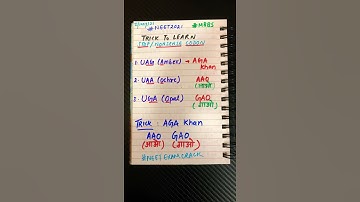 #NEET2021 #MBBS
TRICK TO LEARN
STOP/NONSENSE CODON
1. UAG (Amber) → AGA
Khan
2. UAA (Ochre) AAO
(आओ)
3. UGA (Opal) GAO
(गाओ)
TRICK: AGA Khan
AAO GAO
(आओ) (गाओ)
#NEETEXAMCRACK